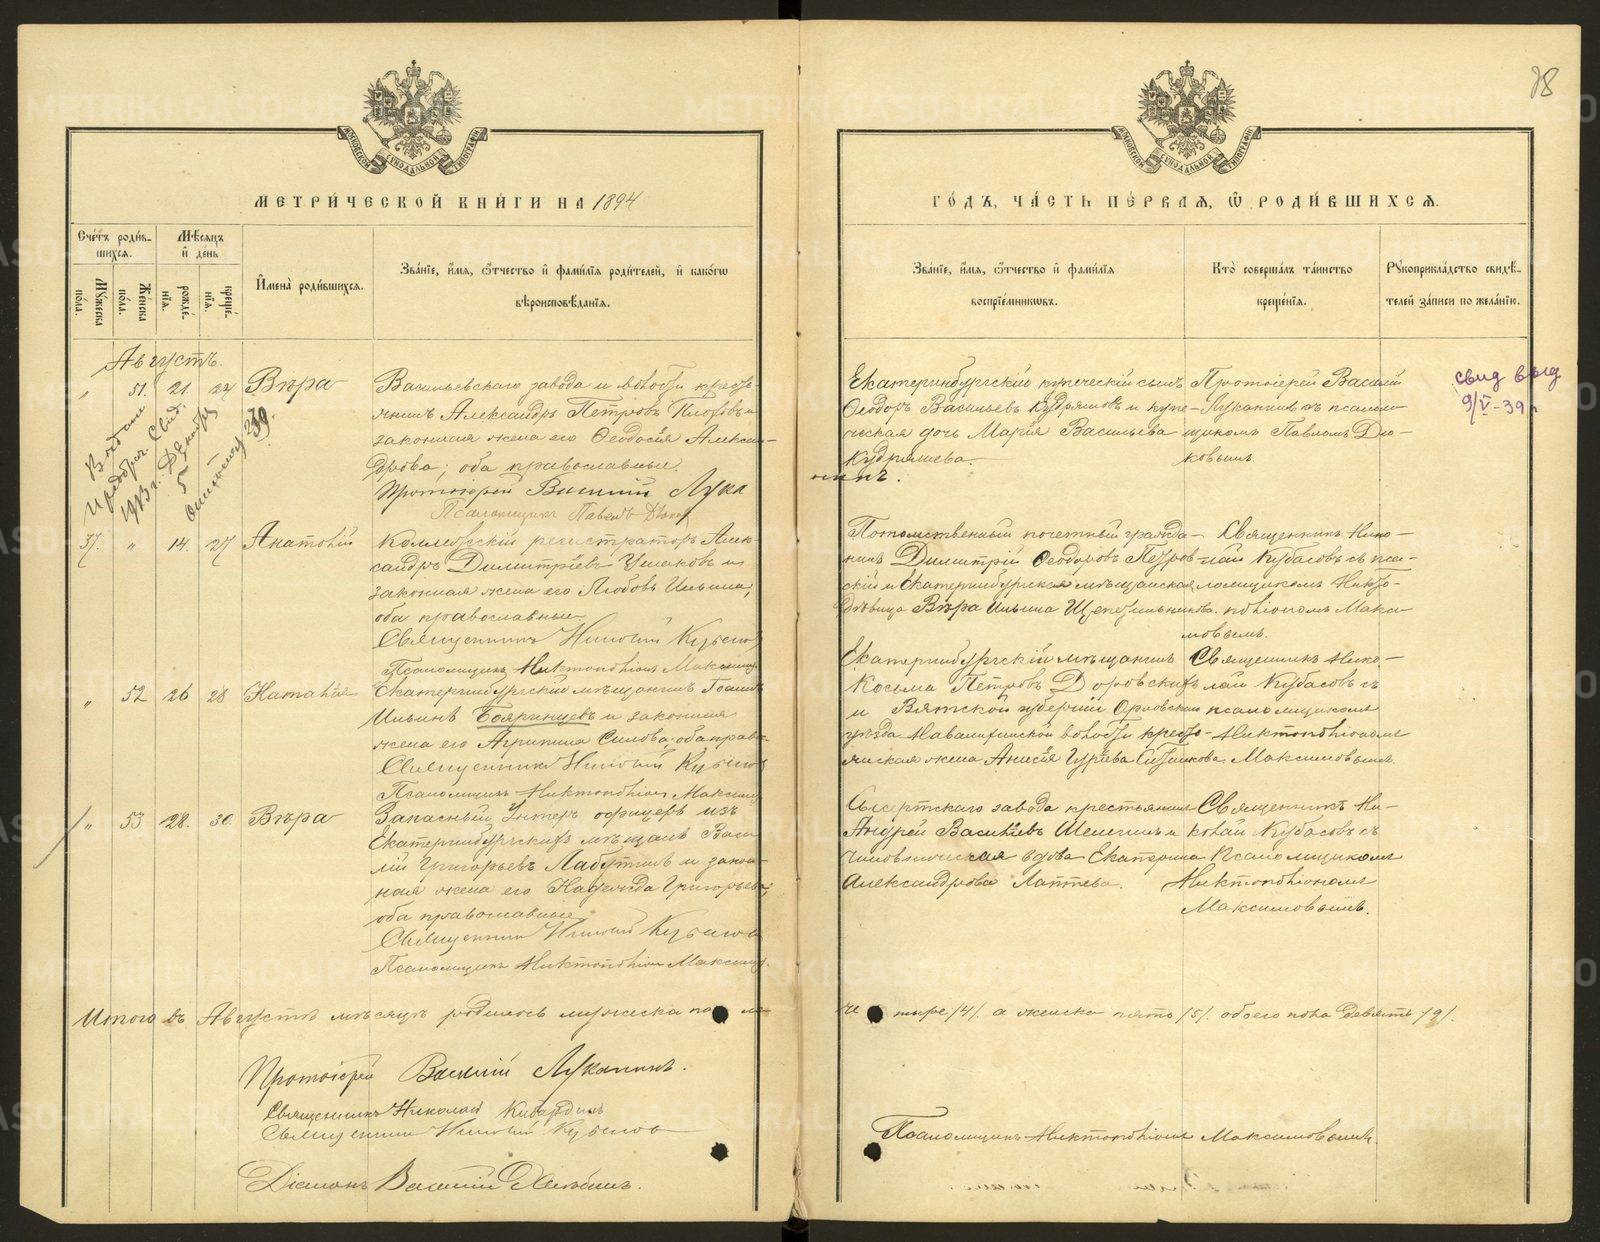 78
МЕТРИ́ЧЕСКОЙ КНИ́ГИ НА 1894
ГО́ДЪ, ЧА́СТЬ ПЕ́РВАЯ, Ѽ РОДИ́ВШИХСѦ.
Сче́тъ роди́в-
шихсѧ.
Мѣ́сѧцъ
и҆ де́нь
Му́жеска по́ла.
Же́нска по́ла.
рожде́-нїѧ.
креще́-нїѧ.
И҆мена̀ роди́вшихсѧ.
Зва́нїе, и҆́мѧ, ѻ҆́тчество и҆ фами́лїѧ роди́телей, и҆ како́гѡ
вѣроисповѣ́данїѧ.
Зва́нїе, и҆́мѧ, ѻ҆́тчество и҆ фами́лїѧ
воспрїе́мникѡвъ.
Кто̀ соверша́лъ та́инство
креще́нїѧ.
Рꙋкоприкла́дство свидѣ́-
телей за́писи по жела́нїю.
Августъ.
" 51. 21. 22 Вѣра
Васильевскаго завода и волости кресть-
янинъ Александръ Петровъ и
законная жена его Ѳеодосія Алексан-
дрова; оба православные.
Протоіерей Василій Лука
нинъ.
Псаломщикъ Павелъ
Екатеринбургскій купеческій сынъ
Ѳеодоръ Васильевъ Кудряшовъ и купе-
ческая дочь Марія Васильева
Кудряшева.
Протоіерей Василій
Луканинъ съ псалом-
щикомъ Павломъ Дю-
ковымъ.
свид выд
9/V-39 г
Выдано
1913 г. Декабр
5
37. " 14. 27 Анатолій
Коллежскій регистраторъ Алек-
сандръ Димитріевъ Ушаковъ и
законная жена его Любовь Ильина;
оба православные
Священникъ Николай Кубасовъ
Псаломщикъ Никтополіонъ Максимов
Потомственный почетный гражда-
нинъ Димитрій Ѳеодоровъ Петров-
скій и Екатеринбургская мѣщанская
дѣвица Вѣра Ильина Щепетильникова.
Священникъ Нико-
лай Кубасовъ съ пса-
ломщикомъ Никто-
поліономъ Макси-
мовымъ.
" 52 26 28 Наталія
Екатеринбургскій мѣщанинъ Іоаннъ
Ильинъ Бояринцевъ и законная
жена его Агрипина Силова, оба правос-
Священникъ Николай Кубасов
Псаломщикъ Никтополіонъ Максимов
Екатеринбургскій мѣщанинъ
Косьма Петровъ
и Вятской губерніи Орловскаго
уѣзда волости кресть-
янская жена Анисія Гурьева Ситникова
Священникъ Нико-
лай Кубасовъ съ
псаломщикомъ
Никтополіономъ
Максимовымъ.
" 53 28. 30. Вѣра
Запасный Унтеръ офицеръ изъ
Екатеринбургскихъ мѣщанъ Васи-
лій Григорьевъ Лабутинъ и закон-
ная жена его Надежда Григорьева;
оба православные
Священникъ Николай Кубасов
Псаломщикъ Никтополіонъ Максимов.
Сысертскаго завода крестьянинъ
Андрей Васильевъ Шелегинъ и
чиновническая вдова Екатерина
Александрова Лаптева.
Священникъ Ни-
колай Кубасовъ съ
Псаломщикомъ
Никтополіономъ
Максимовымъ.
Итого въ Августѣ мѣсяцѣ родилось мужеска по че тыре /4/. а женска пять /5/. обоего пола девять /9/.
Протоіерей Василій Луканинъ.
Священникъ Николай
Священникъ Николай Кубасовъ
Діаконъ Василій Хлѣбинъ.
Псаломщикъ Никтополіонъ Максимовъ.